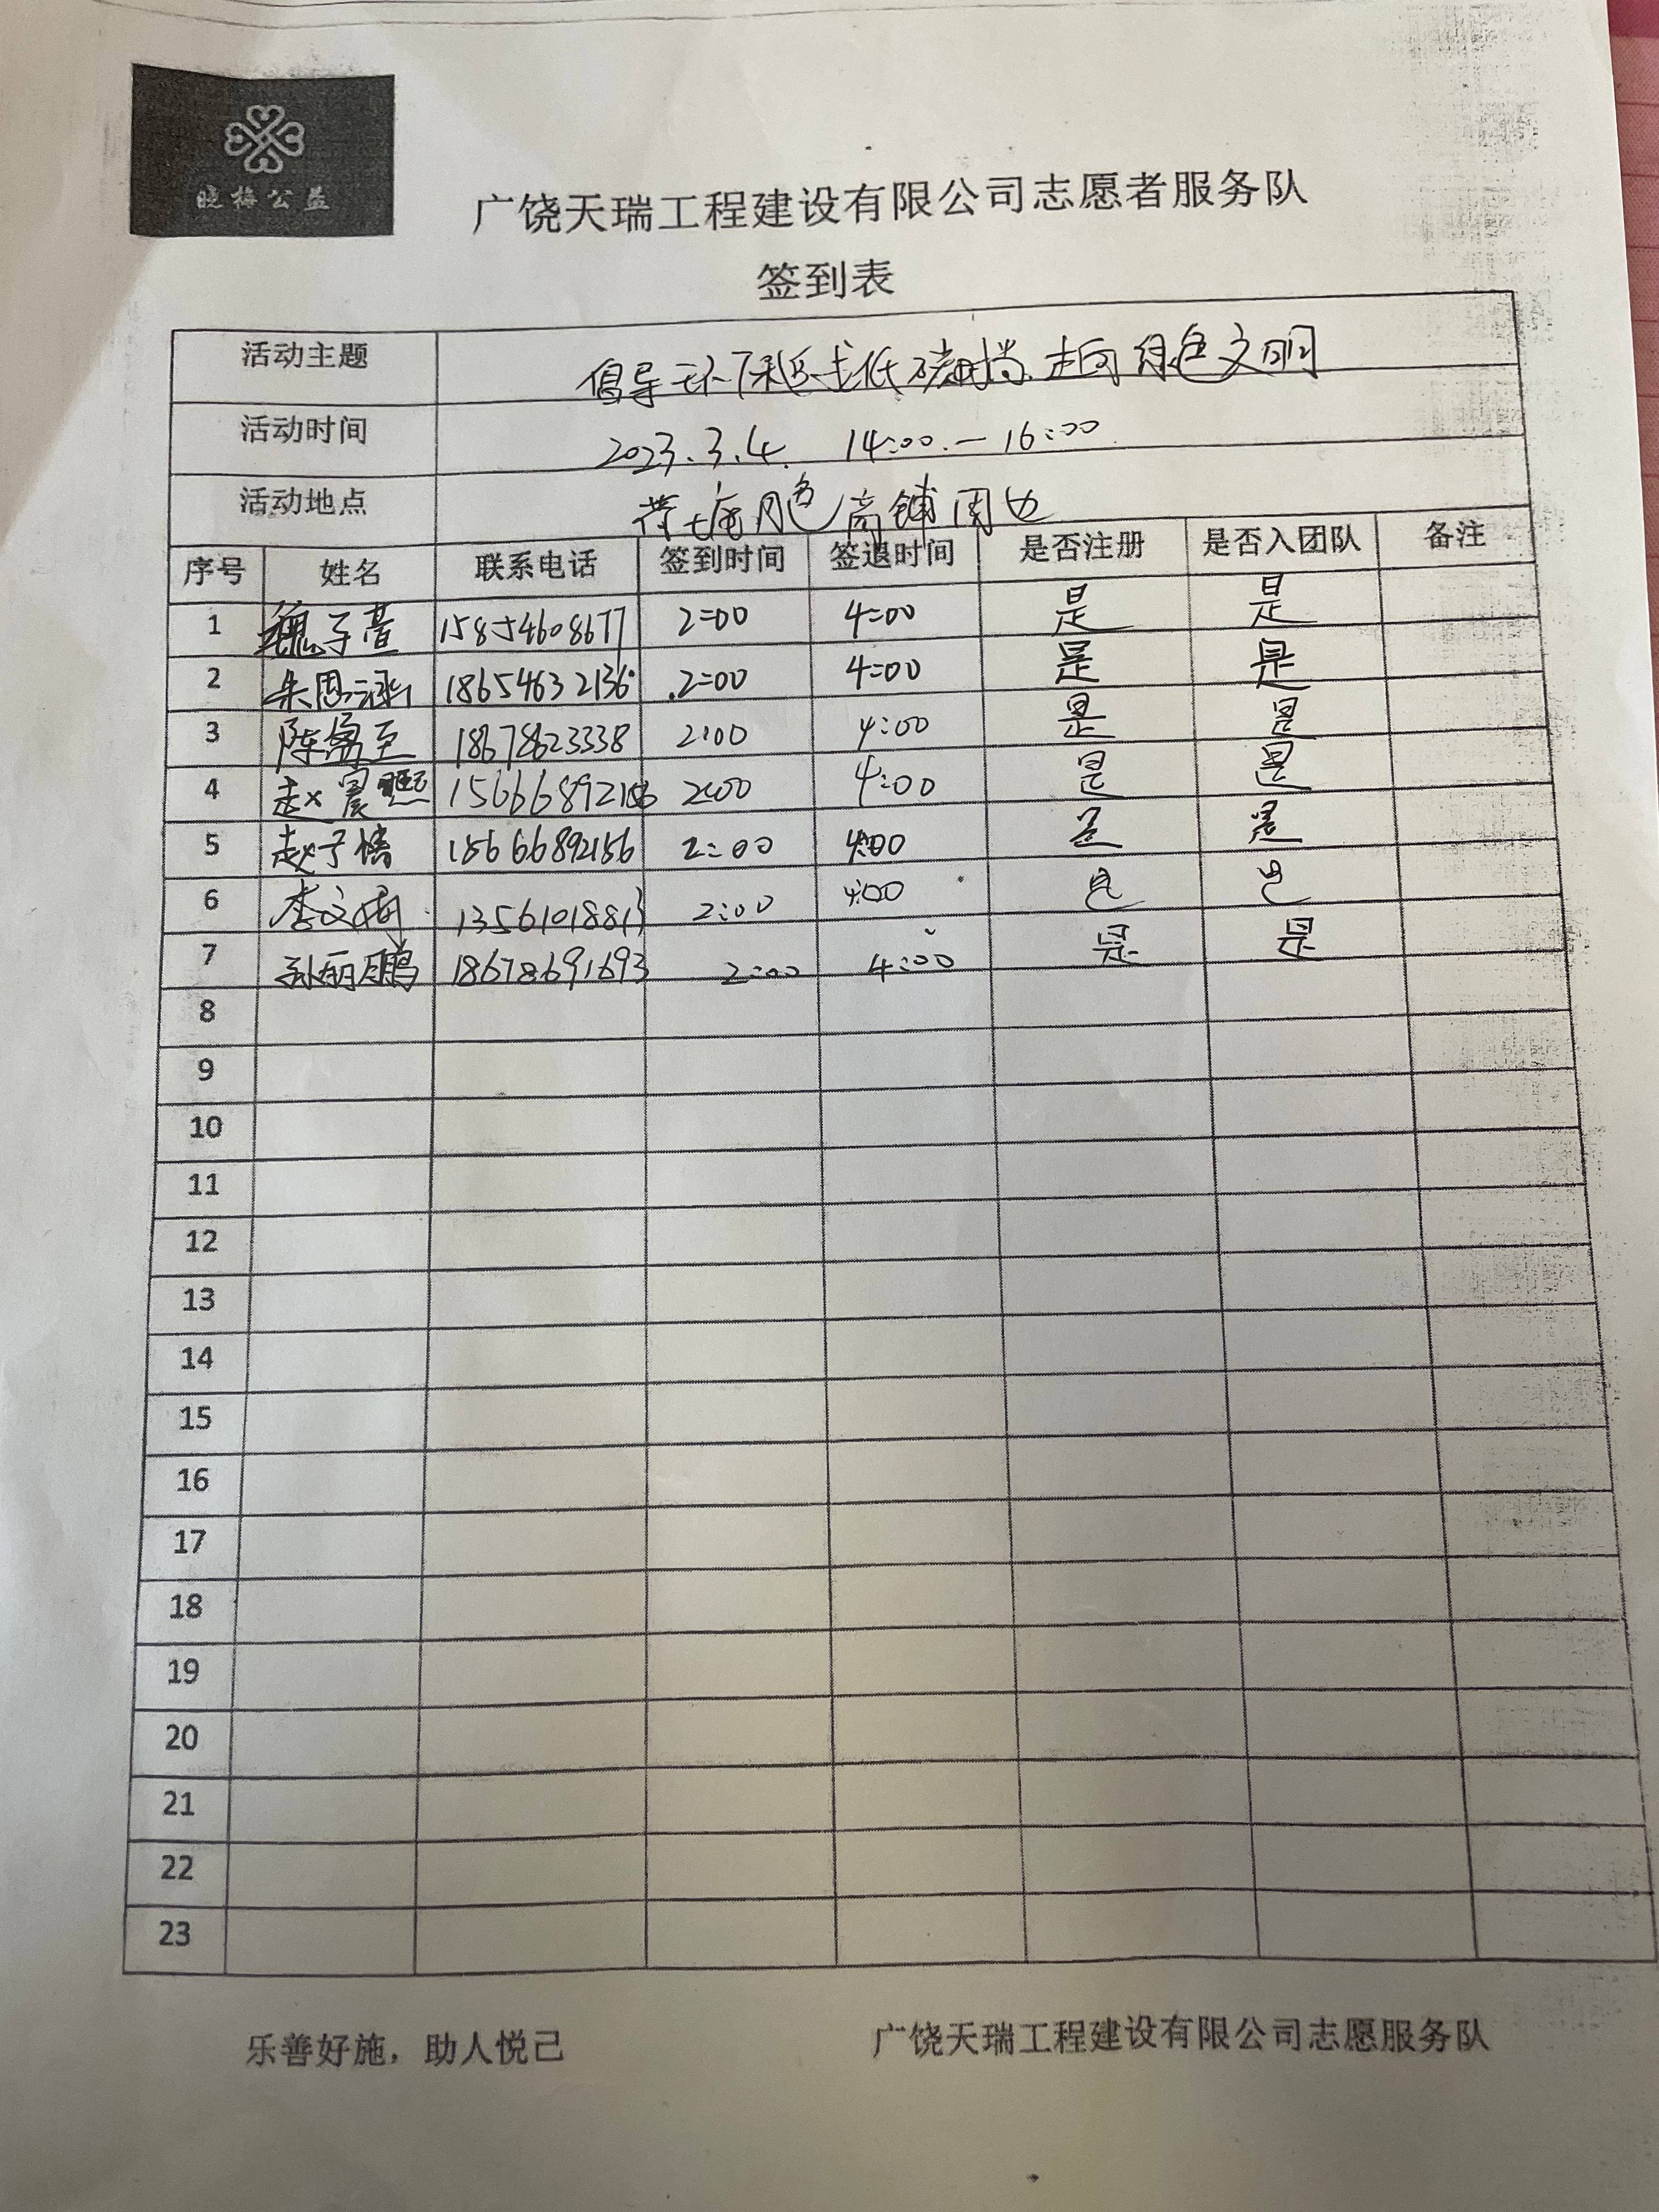 晓梅公益
广饶天瑞工程建设有限公司志愿者服务队
签到表
活动主题 倡导环保 低碳时尚 走向绿色文明
活动时间 2023.3.4. 14:00.—16:00
活动地点 商铺周边
序号 姓名 联系电话 签到时间 签退时间 是否注册 是否入团队 备注
1 魏子萱 15854608677 2:00 4:00 是 是
2 朱思涵 18654632136 2:00 4:00 是 是
3 陈 至 18678623338 2:00 4:00 是 是
4 赵晨熙 2:00 4:00 是 是
5 赵子 15666892156 2:00 4:00 是 是
6 李文雨 2:00 4:00 是 是
7 孙丽鹏 18678691693 2:00 4:00 是 是
8
9
10
11
12
13
14
15
16
17
18
19
20
21
22
23
乐善好施，助人悦己 广饶天瑞工程建设有限公司志愿服务队